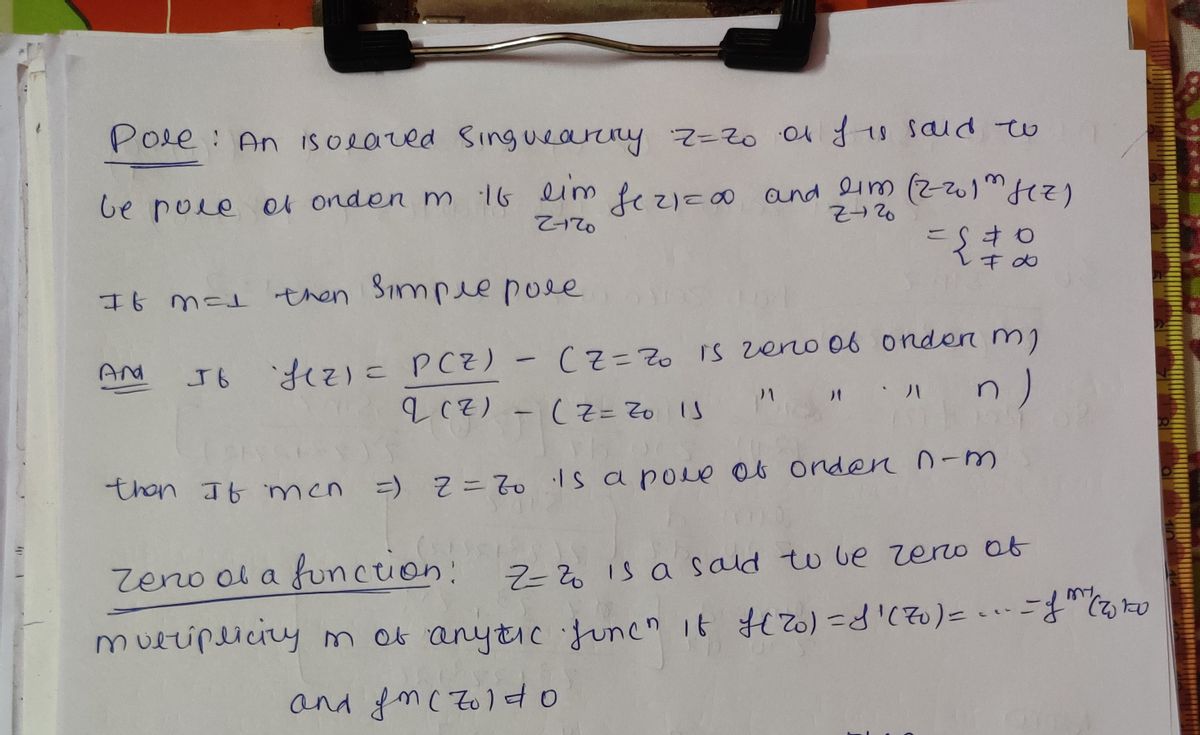 Pole : An isolated singularity z=z₀ of f is said to
be pole of order m if lim_{z→z₀} f(z)=∞ and lim_{z→z₀} (z-z₀)^m f(z)
= { ≠ 0
≠ ∞
If m=1 then simple pole
And If f(z) = p(z) - (z=z₀ is zero of order m)
q(z) - (z=z₀ is " " " n)
then If m<n ⇒ z=z₀ is a pole of order n-m
Zero of a function: z=z₀ is a said to be zero of
multiplicity m of anytic funcⁿ if f(z₀)=f'(z₀)= ... =f^{m-1}(z₀)=0
and f^m(z₀)≠0